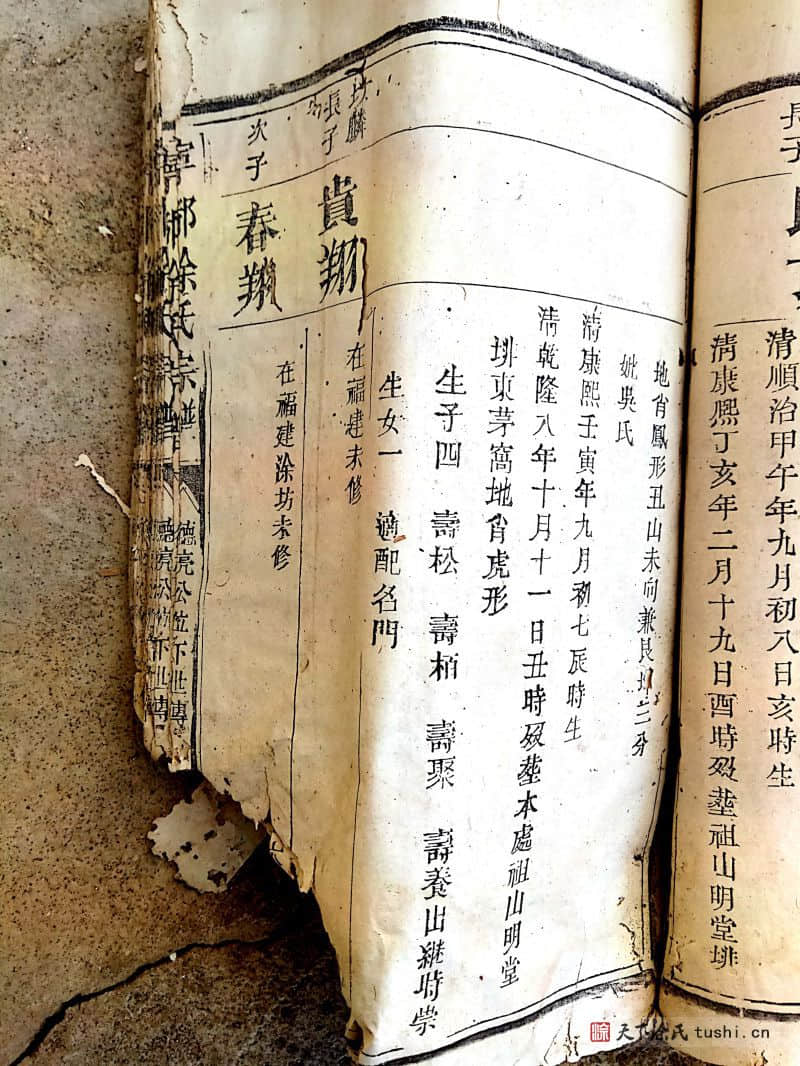 長子
清順治甲午年九月初八日亥時生
清康熙丁亥年二月十九日酉時歿塟祖山明堂排
地肖鳳形丑山未向兼艮坤三分
妣吳氏
清康熙壬寅年九月初七辰時生
清乾隆八年十月十一日丑時歿塟本處祖山明堂
排東茅窩地肖虎形
生子四 壽松 壽栢 壽聚 壽養出継時崇
生女一 適配名門
長子
貴翔
在福建未修
次子
春翔
在福建涂坊未修
寧都涂氏宗譜
德亮公位下世傳
天下涂氏 tushi.cn